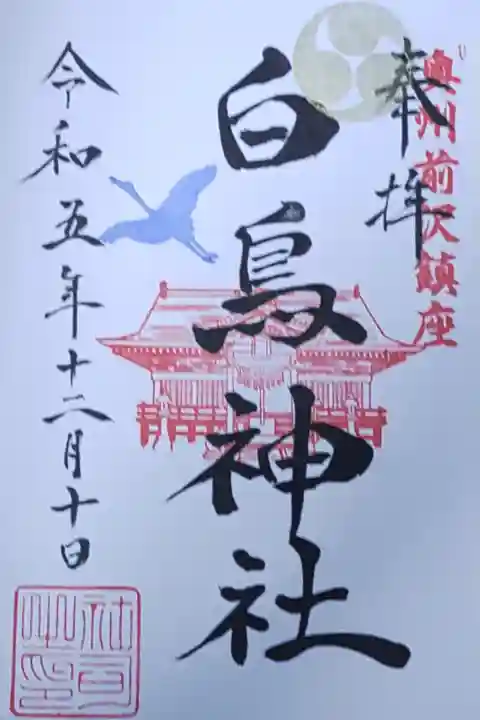 奉拝
奥州前沢鎮座
白鳥神社
令和五年十二月十日
社司之印